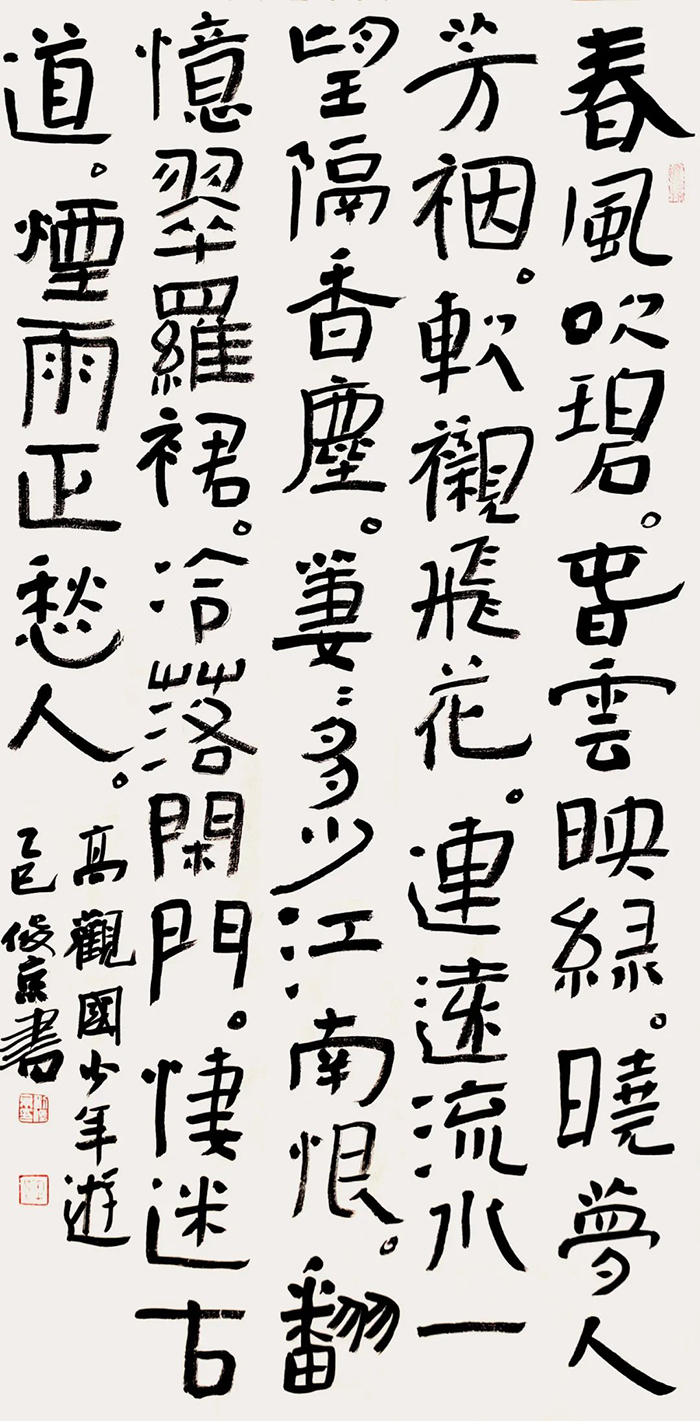 春風吹碧。旾雲映緑。曉夢人
芳裀。軟襯飛花。連遠流水一
望隔香塵。萋〻多少江南恨。翻
憶翠羅裙。冷落閑門。悽迷古
道。煙雨正愁人。
高觀國少年遊
乙巳俊京書